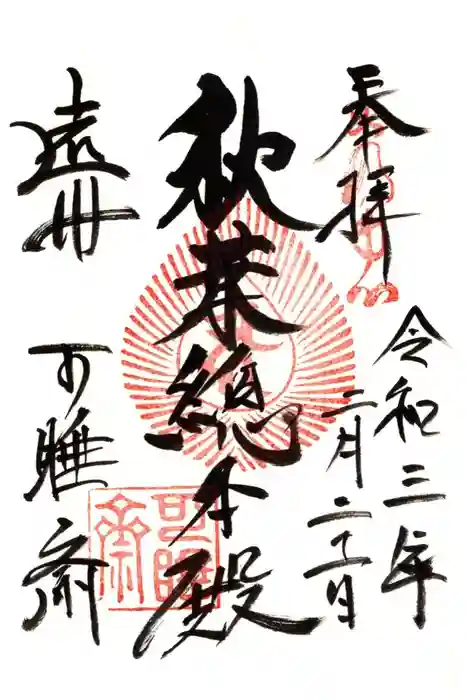 奉拝
令和三年
二月二十一日
秋葉總本殿
遠州
可睡斎
可睡
齋